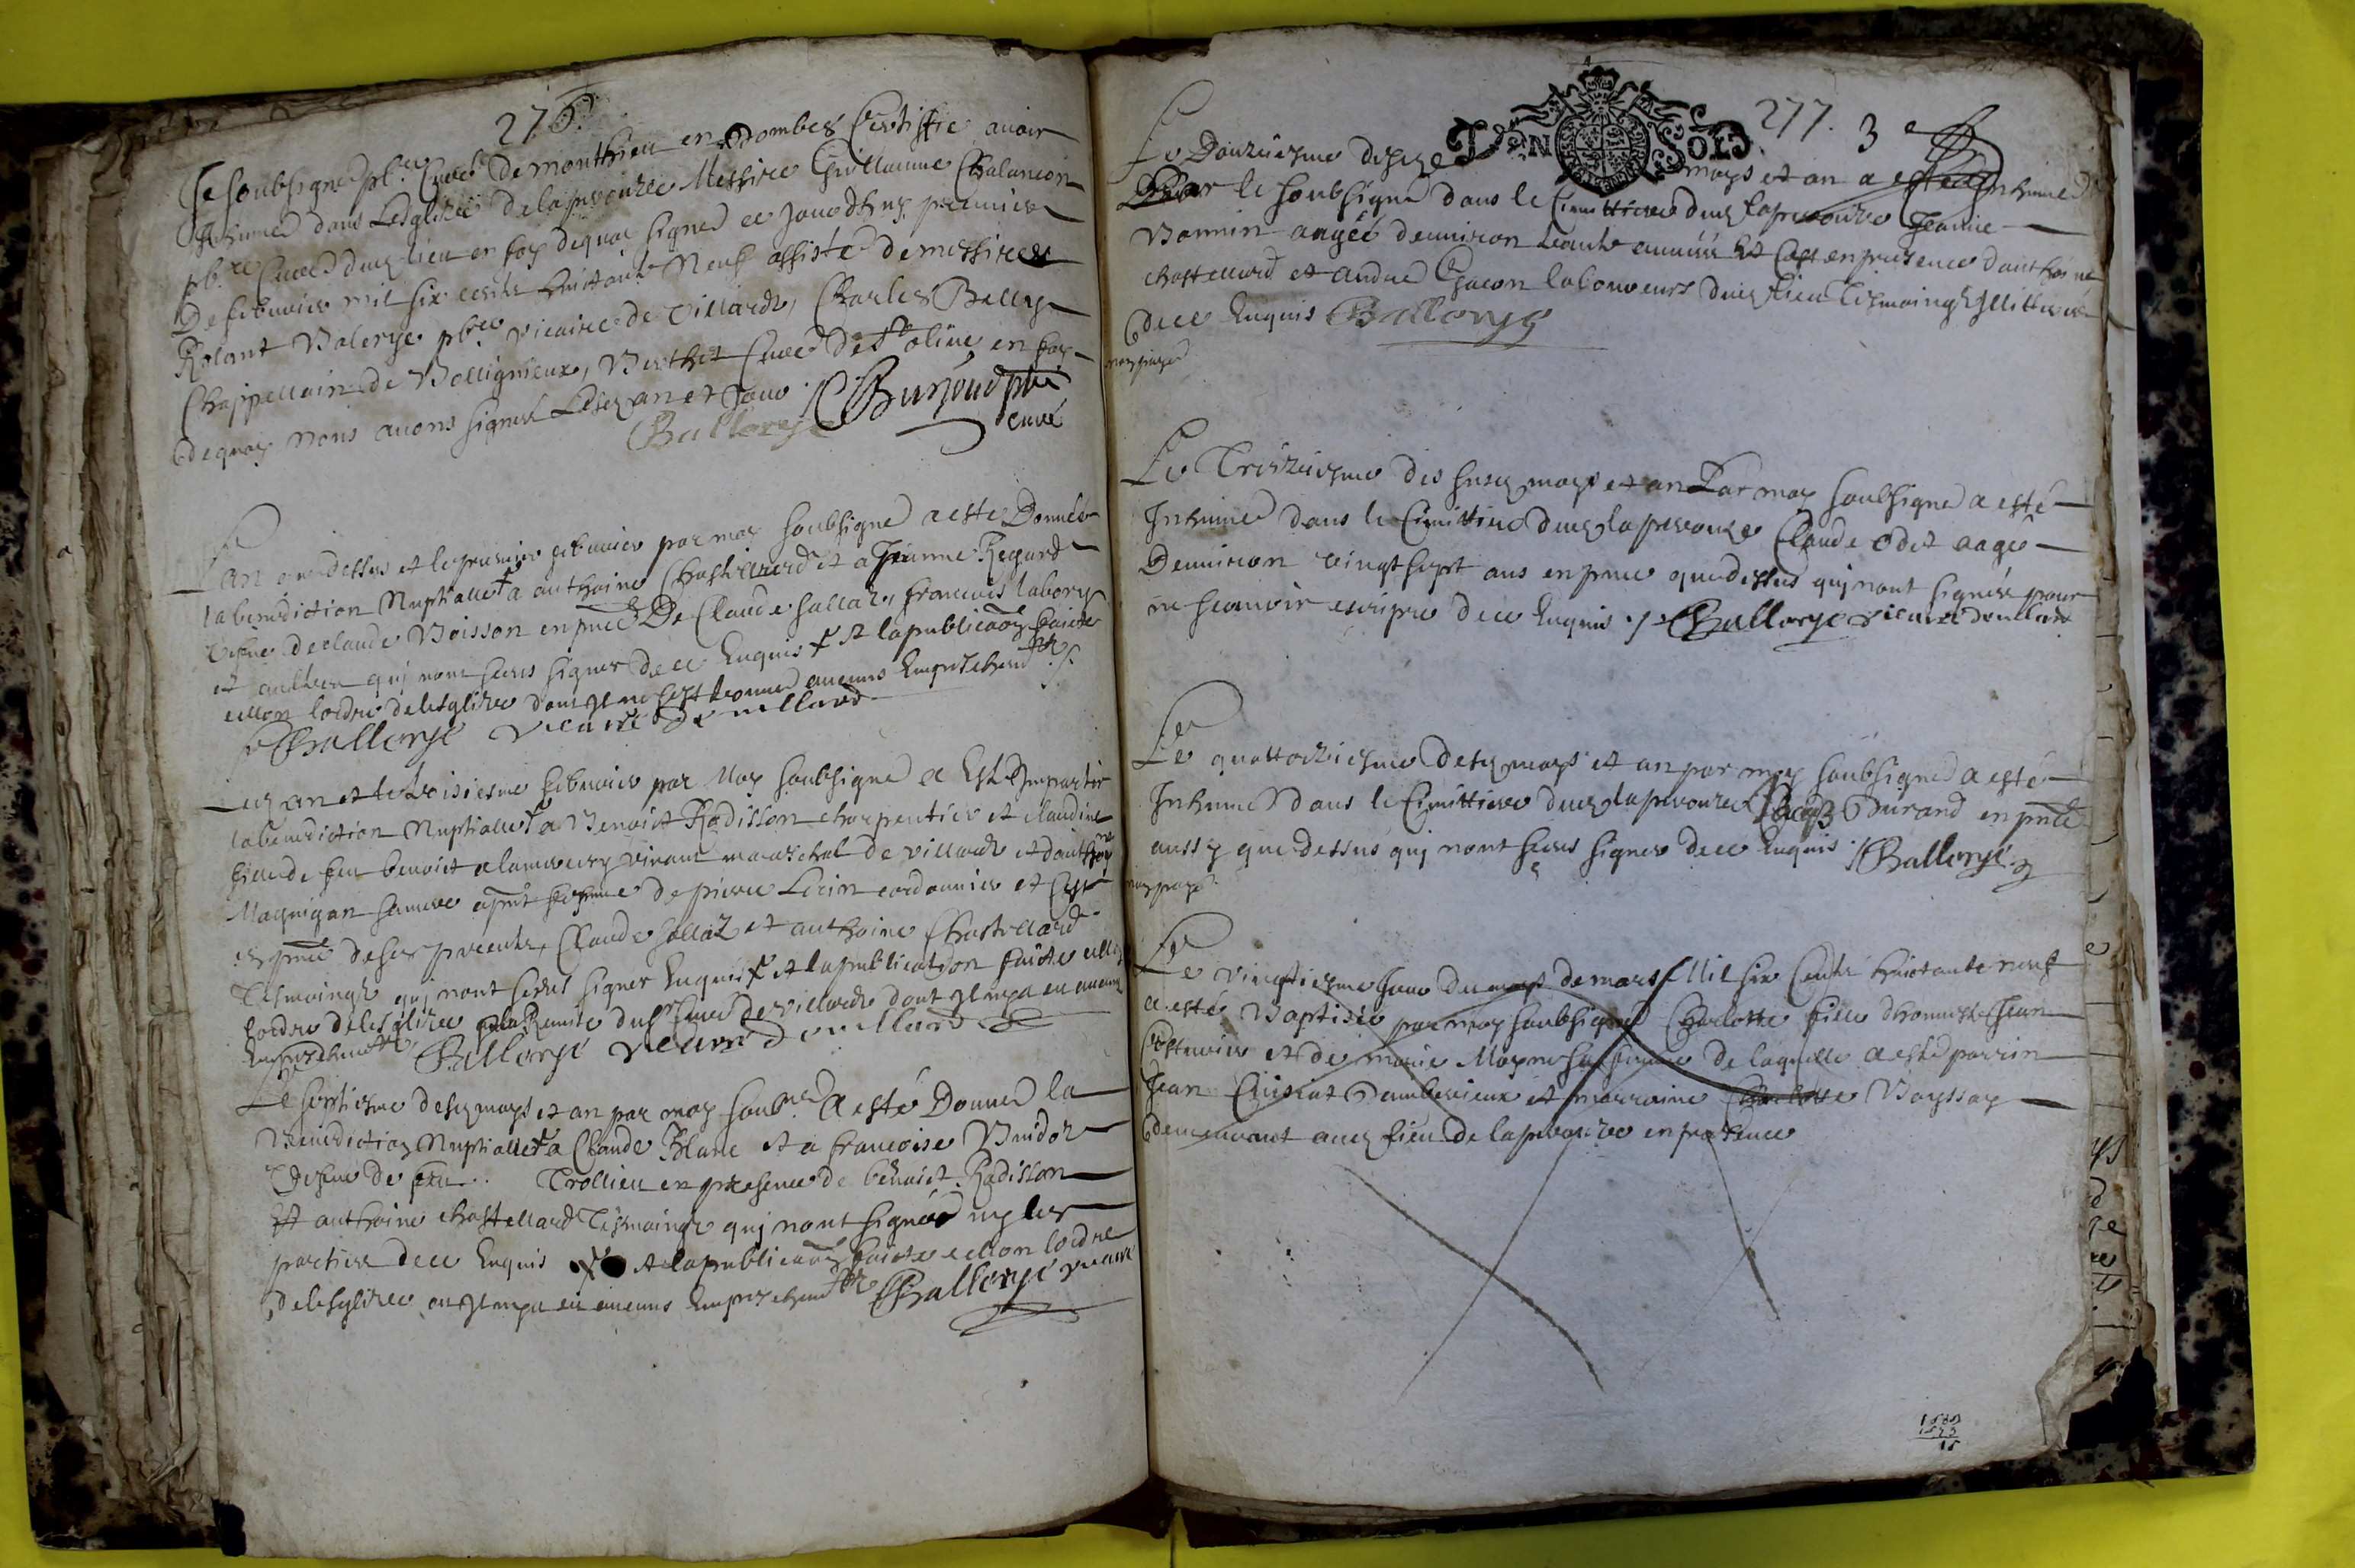 276.
Je soubsigné pbre Curé de monthieu en Dombes Certiffie avoir
Inhumé dans Lesglize de laperouze Messire Guillaume Chalancon
pbre Curé dud lieu en foy dequoy signé ce jourdhuy premier
De febvrier mil six cents huictante Neuf assisté de messires
Rolant Balorge pbre vicaire de Villards, Charles Belly
Chappellain de Boulignieux, Berthet Curé de Ste oliue en foy
dequoy nous avons signés Lesd an et Jour
Ballorge Burjoud pbre
curé
Lan que dessus et le premier febvrier par moy soubsigné a esté Donnée
la benediction Nuptialle + a anthoine Chastellard et a Jeanne Regard
vefve de claude Boisson en pnce De Claude Sallaz, francois labory
et aultres quj nont sceus signer de ce Enquis + Et la publicaon faicte
cellon lordre de lesglize dont Il ne sest trouvé aucuns Empeschemt
Ballorge vicaire de villard
Led an et le troisiesme febvrier par Moy soubsigné a Esté Impartie
la benediction Nuptialle + a Benoict Radisson charpentier et claudine
fille de feu benoict alamercery vivant mareschal de villards et danthoy
Maguigan femme apnt de pierre Lerin cordonnier et Cest
en pnce de ses parents, Claude Sallaz et anthoine Chastellard
Tesmoings quj nont sceus signer Enquis + et la publication faicte cellon
lordre de lesglize par la Remise du sr Curé de villards dont Il nya eu aucuns
Empeschemt Ballorge vicaire de villard
Le septiesme desd mays et an par moy soubné A esté Donné la
Benediction Nuptialle + a Claude Blanc et a francoise Buidoz
vefve de feu .. Trollieu en presence de benoict Radisson
Et anthoine chastellard Tesmoings quj nont signés ny les
parties de ce Enquis + Et la publicaon faicte cellon lordre
de lesglize ou Il nya eu aucuns Empeschemt Ballorge vicaire
277. 3e
D'UN SOLD.
Le Douziesme desd mays et an a esté Inhumé
Par le soubsigné dans le Cimittiere dud laperouze Jeanne
Bonnin aagée denviron trante années Et Cest en presence danthoine
chastellard et andré Gacon laboureurs dud lieu Tesmoings Illitterés
de ce Enquis Ballorge
non paye
Le Treiziesme des susd mays et an Par moy soubsigné a esté
Inhumé dans le Cimittiere dud laperouze Claude Odet aagé
Denviron vingt sept ans en pnce que dessus quj nont signés pour
ne scavoir escripre de ce Enquis Ballorge vicaire de villard
Le quattorziesme desd mays et an par moy soubsigné a esté
Inhumé dans le Cimittiere dud laperouze Durand en pnce
aussy que dessus quj nont sceus signer de ce Enquis Ballorge
non paye
Le vingtiesme jour du mays de mars Mil six Cents huictante neuf
a esté Baptisée par moy soubsigné Charlotte fille dhonneste Jean
et de marie Mayne sa femme de laquelle a esté parrin
Jean Cuisrat Damberieux et marraine Charlotte Boyssay
demeurant aud lieu de laperouze en presence
15